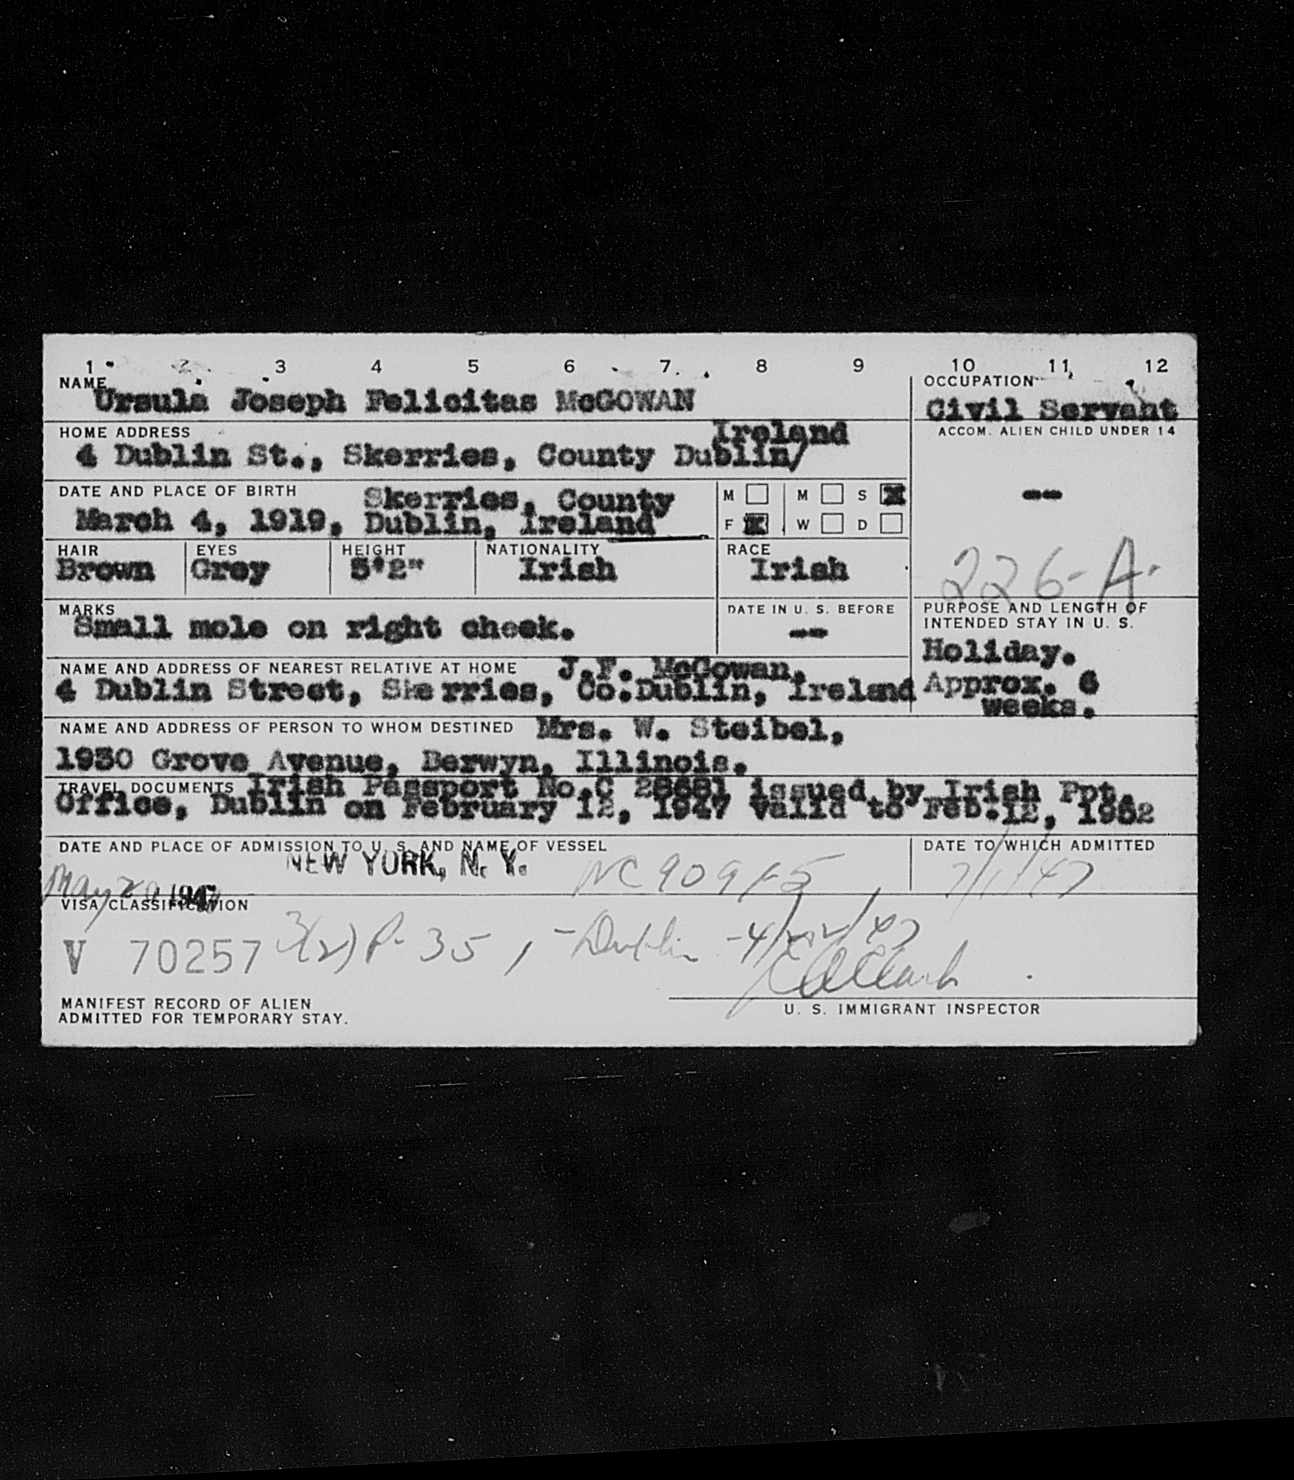 1 2 3 4 5 6 7 8 9 10 11 12
NAME
Ursula Joseph Felicitas McGOWAN
OCCUPATION
Civil Servant
HOME ADDRESS
Ireland
4 Dublin St., Skerries, County Dublin/
ACCOM. ALIEN CHILD UNDER 14
--
DATE AND PLACE OF BIRTH
Skerries, County
March 4, 1919, Dublin, Ireland
M M S X
F X W D
HAIR
Brown
EYES
Grey
HEIGHT
5'2"
NATIONALITY
Irish
RACE
Irish
226-A.
MARKS
Small mole on right cheek.
DATE IN U. S. BEFORE
--
PURPOSE AND LENGTH OF
INTENDED STAY IN U. S.
Holiday.
Approx. 6
weeks.
NAME AND ADDRESS OF NEAREST RELATIVE AT HOME J.F. McGowan,
4 Dublin Street, Skerries, Co.Dublin, Ireland
NAME AND ADDRESS OF PERSON TO WHOM DESTINED Mrs. W. Steibel,
1930 Grove Avenue, Berwyn, Illinois.
TRAVEL DOCUMENTS Irish Passport No.C 28681 issued by Irish Ppt.
Office, Dublin on February 12, 1947 valid to Feb.12, 1952
DATE AND PLACE OF ADMISSION TO U. S. AND NAME OF VESSEL
NEW YORK, N. Y. NC 90915
May 20 1947
DATE TO WHICH ADMITTED
7/1/47
VISA CLASSIFICATION
V 70257 3(2) P-35, -Dublin -4/22/47
MANIFEST RECORD OF ALIEN
ADMITTED FOR TEMPORARY STAY.
U. S. IMMIGRANT INSPECTOR